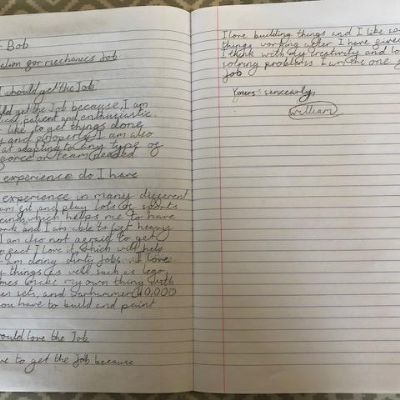 Bob
for mechanics Job
I should get the Job
get the Job because I am
patient and enthusiastic.
like to get things done
and properly I am also
at adapting to any type of
or team needed
experience do I have
experience in many different
and play lots of sports
which helps me to have
and I am able to lift heavy
I am also not afraid to get
fact I love it which will help
am doing dirty Jobs. I love
things as well such as lego,
make my own thing with
sets, and Warhammer 40,000
you have to build and paint
would love the Job
to get the Job because
I love building things and I like
things working after I have
I think with my creativity and
solving problems I am the one
Job
Yours sincerely,
william